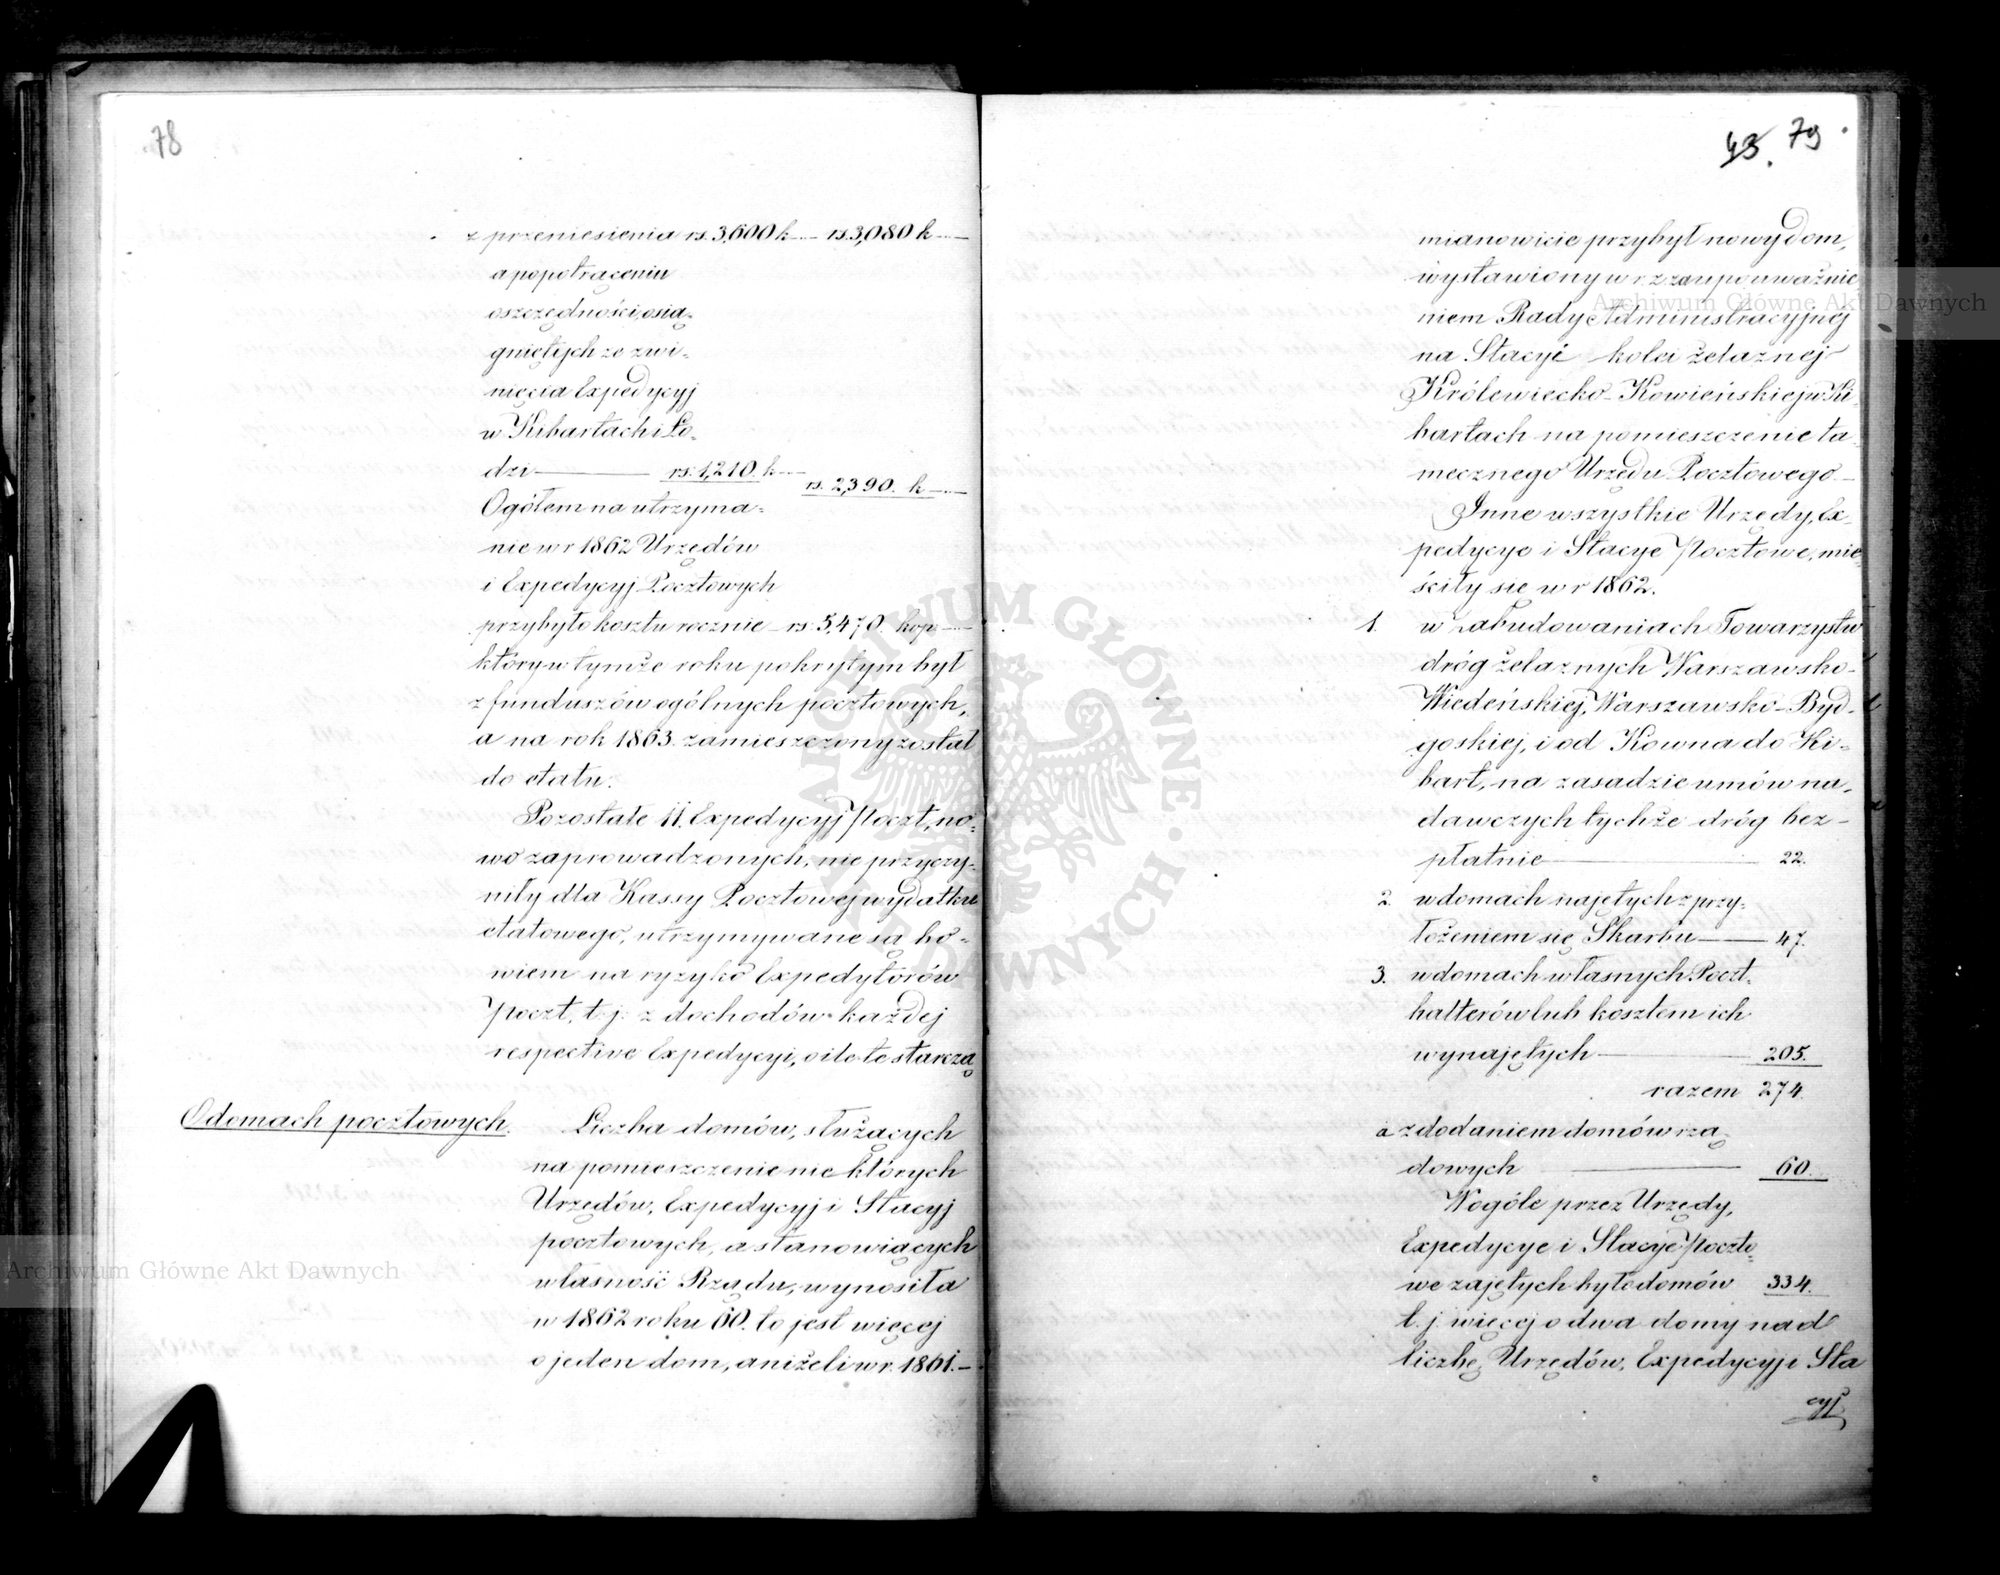 78
z przeniesienia rs. 3,600 k — rs 3,080 k —
a po potrąceniu
oszczędności, osią-
gniętych ze zwi-
nięcia Expedycyj
w Kibartach i Ło-
dzi — rs. 1,210. k — rs. 2,390. k —
Ogółem na utrzyma-
nie w r 1862 Urzędów
i Expedycyj Pocztowych
przybyło kosztu rocznie — rs. 5,470. kop —
który w tymże roku pokrytym był
z funduszów ogólnych pocztowych,
a na rok 1863. zamieszczony został
do etatu.
Pozostałe 11. Expedycyj Poczt, no-
wo zaprowadzonych, nie przyczy-
niły dla Kassy Pocztowej wydatku
etatowego, utrzymywane są bo-
wiem na ryzyko Expedytorów
Poczt, t. j. z dochodów każdej
respective Expedycyi, o ile te starczą
O domach pocztowych.
Liczba domów, służących
na pomieszczenie nie których
Urzędów, Expedycyj i Stacyj
pocztowych, a stanowiących
własność Rządu, wynosiła
w 1862 roku 60. to jest więcej
o jeden dom, aniżeli w r. 1861. —
43. 79
mianowicie przybył nowy dom,
wystawiony w r. z za upoważnie
niem Rady Administracyjnej
na Stacyi kolei żelaznej
Królewiecko-Kowieńskiej w Ki-
bartach na pomieszczenie ta-
mecznego Urzędu Pocztowego. —
Inne wszystkie Urzędy, Ex-
pedycye i Stacye Pocztowe, mie
ściły się w r 1862.
1. w zabudowaniach Towarzystw
dróg żelaznych Warszawsko-
Wiedeńskiej, Warszawsko-Byd-
goskiej, i od Kowna do Ki-
bart, na zasadzie umów na-
dawczych tychże dróg bez-
płatnie — 22.
2. w domach najętych z przy-
łożeniem się Skarbu — 47.
3. w domach własnych Poczt-
halterów lub kosztem ich
wynajętych — 205.
razem 274.
a z dodaniem domów rzą-
dowych — 60.
Wogóle przez Urzędy,
Expedycye i Stacye Poczto-
we zajętych było domów 334.
t. j. więcej o dwa domy nad
liczbę Urzędów, Expedycyj i Sta
cyj
Archiwum Główne Akt Dawnych
Archiwum Główne Akt Dawnych
ARCHIWUM GŁÓWNE · AKT DAWNYCH ·